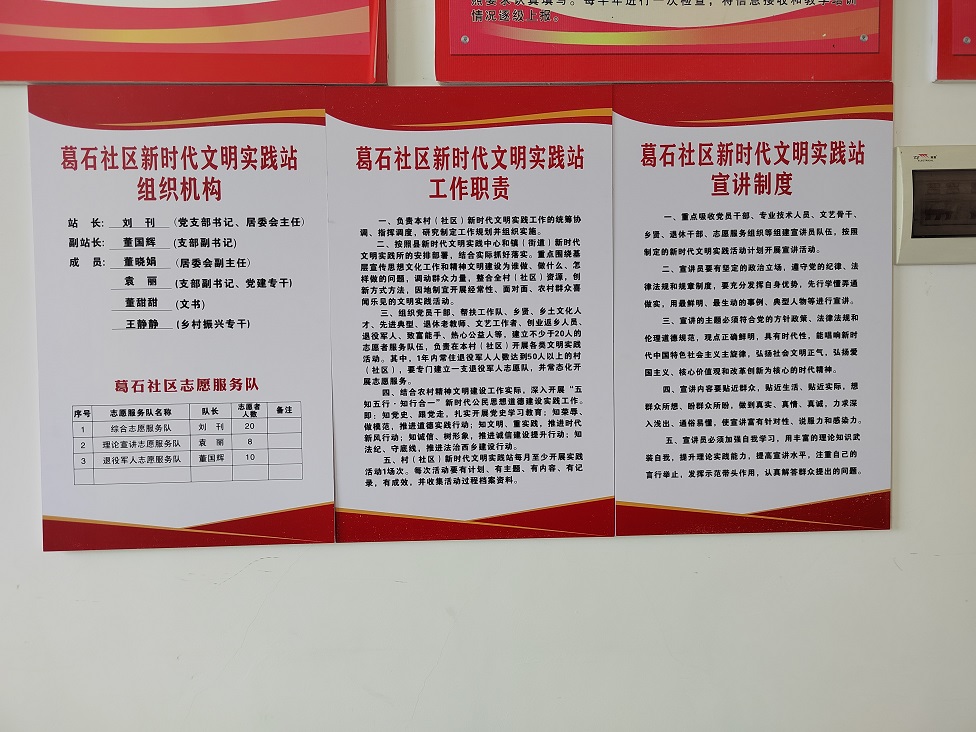 情况逐级上报。
葛石社区新时代文明实践站
组织机构
站 长: 刘 刊 (党支部书记、居委会主任)
副站长: 董国辉 (支部副书记)
成 员: 董晓娟 (居委会副主任)
袁 丽 (支部副书记、党建专干)
董甜甜 (文书)
王静静 (乡村振兴专干)
葛石社区志愿服务队
序号 志愿服务队名称 队长 志愿者人数 备注
1 综合志愿服务队 刘 刊 20
2 理论宣讲志愿服务队 袁 丽 8
3 退役军人志愿服务队 董国辉 10
葛石社区新时代文明实践站
工作职责
一、负责本村(社区)新时代文明实践工作的统筹协
调、指挥调度,研究制定工作规划并组织实施。
二、按照县新时代文明实践中心和镇(街道)新时代
文明实践所的安排部署,结合实际抓好落实。重点围绕基
层宣传思想文化工作和精神文明建设为谁做、做什么、怎
样做的问题,调动群众力量,整合全村(社区)资源,创
新方式方法,因地制宜开展经常性、面对面、农村群众喜
闻乐见的文明实践活动。
三、组织党员干部、帮扶工作队、乡贤、乡土文化人
才、先进典型、退休老教师、文艺工作者、创业返乡人员、
退役军人、致富能手、热心公益人等,建立不少于20人的
志愿者服务队伍,负责在本村(社区)开展各类文明实践
活动。其中,1年内常住退役军人人数达到50人以上的村
(社区),要专门建立一支退役军人志愿队,并常态化开
展志愿服务。
四、结合农村精神文明建设工作实际,深入开展“五
知五行·知行合一”新时代公民思想道德建设实践工作。
即:知党史、跟党走,扎实开展党史学习教育;知荣辱、
做模范,推进道德实践行动;知文明、重实践,推进时代
新风行动;知诚信、树形象,推进诚信建设提升行动;知
法纪、守底线,推进法治西乡建设行动。
五、村(社区)新时代文明实践站每月至少开展实践
活动1场次。每次活动要有计划、有主题、有内容、有记
录,有成效,并收集活动过程档案资料。
葛石社区新时代文明实践站
宣讲制度
一、重点吸收党员干部、专业技术人员、文艺骨干、
乡贤、退休干部、志愿服务组织等组建宣讲员队伍,按照
制定的新时代文明实践活动计划开展宣讲活动。
二、宣讲员要有坚定的政治立场,遵守党的纪律、法
律法规和规章制度,要充分发挥自身优势,先行学懂弄通
做实,用最鲜明、最生动的事例、典型人物等进行宣讲。
三、宣讲的主题必须符合党的方针政策、法律法规和
伦理道德规范,观点正确鲜明,具有时代性,能唱响新时
代中国特色社会主义主旋律,弘扬社会文明正气,弘扬爱
国主义、核心价值观和改革创新为核心的时代精神。
四、宣讲内容要贴近群众,贴近生活、贴近实际,想
群众所想、盼群众所盼,做到真实、真情、真诚,力求深
入浅出、通俗易懂,使宣讲富有针对性、说服力和感染力。
五、宣讲员必须加强自我学习,用丰富的理论知识武
装自我,提升理论实践能力,提高宣讲水平,注重自己的
言行举止,发挥示范带头作用,认真解答群众提出的问题。